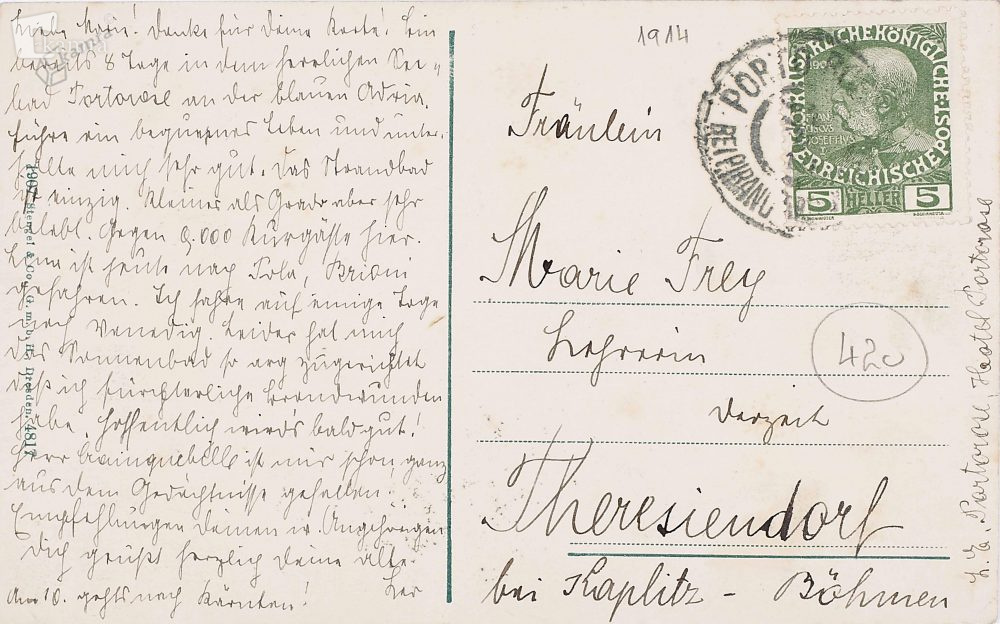 Liebe Marie! Danke für Deine Karte! Bin
bereits 8 Tage in dem herrlichen See-
bad Portorose an der blauen Adria,
führe ein bequemes Leben und unter-
halte mich sehr gut. Das Strandbad
ist einzig. Kleiner als Grado aber sehr
belebt. Gegen 8.000 Kurgäste hier.
ist heute nach Pola, Brioni
gefahren. Ich fahre auf einige Tage
nach Venedig. Leider hat mich
das Sonnenbad so arg zugerichtet
daß ich fürchterliche Brandwunden
habe. Hoffentlich wird's bald gut!
Herr ist mir schon ganz
aus dem Gedächtnisse gefallen.
Empfehlungen Deinen w. Angehörigen
Dich grüßt herzlich Deine alte
Am 10. gehts nach Kärnten!
Stengel & Co., G. m. b. H., Dresden. 4817
1914
Fräulein
Marie Frey
Lehrerin
derzeit
Theresiendorf
bei Kaplitz - Böhmen
420
Portorose, Hotel Portorose
KAISERLICHE KÖNIGLICHE POST
ÖSTERREICHISCHE
5 HELLER 5
PORTOROSE
BEI PIRANO